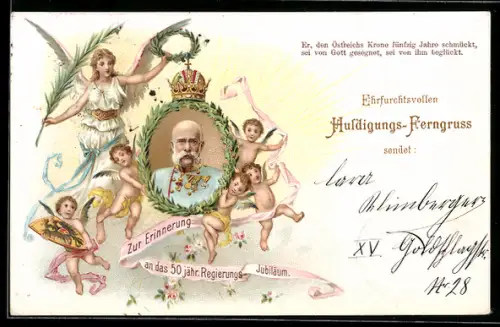 Er, den Östreichs Krone fünfzig Jahre schmückt,
sei von Gott gesegnet, sei von ihm beglückt.
Ehrfurchtsvollen
Huldigungs-Ferngruss
sendet:
Klinberger
XV Goldschlagstr
Nr 28
Zur Erinnerung
an das 50 jähr. Regierungs-Jubiläum.